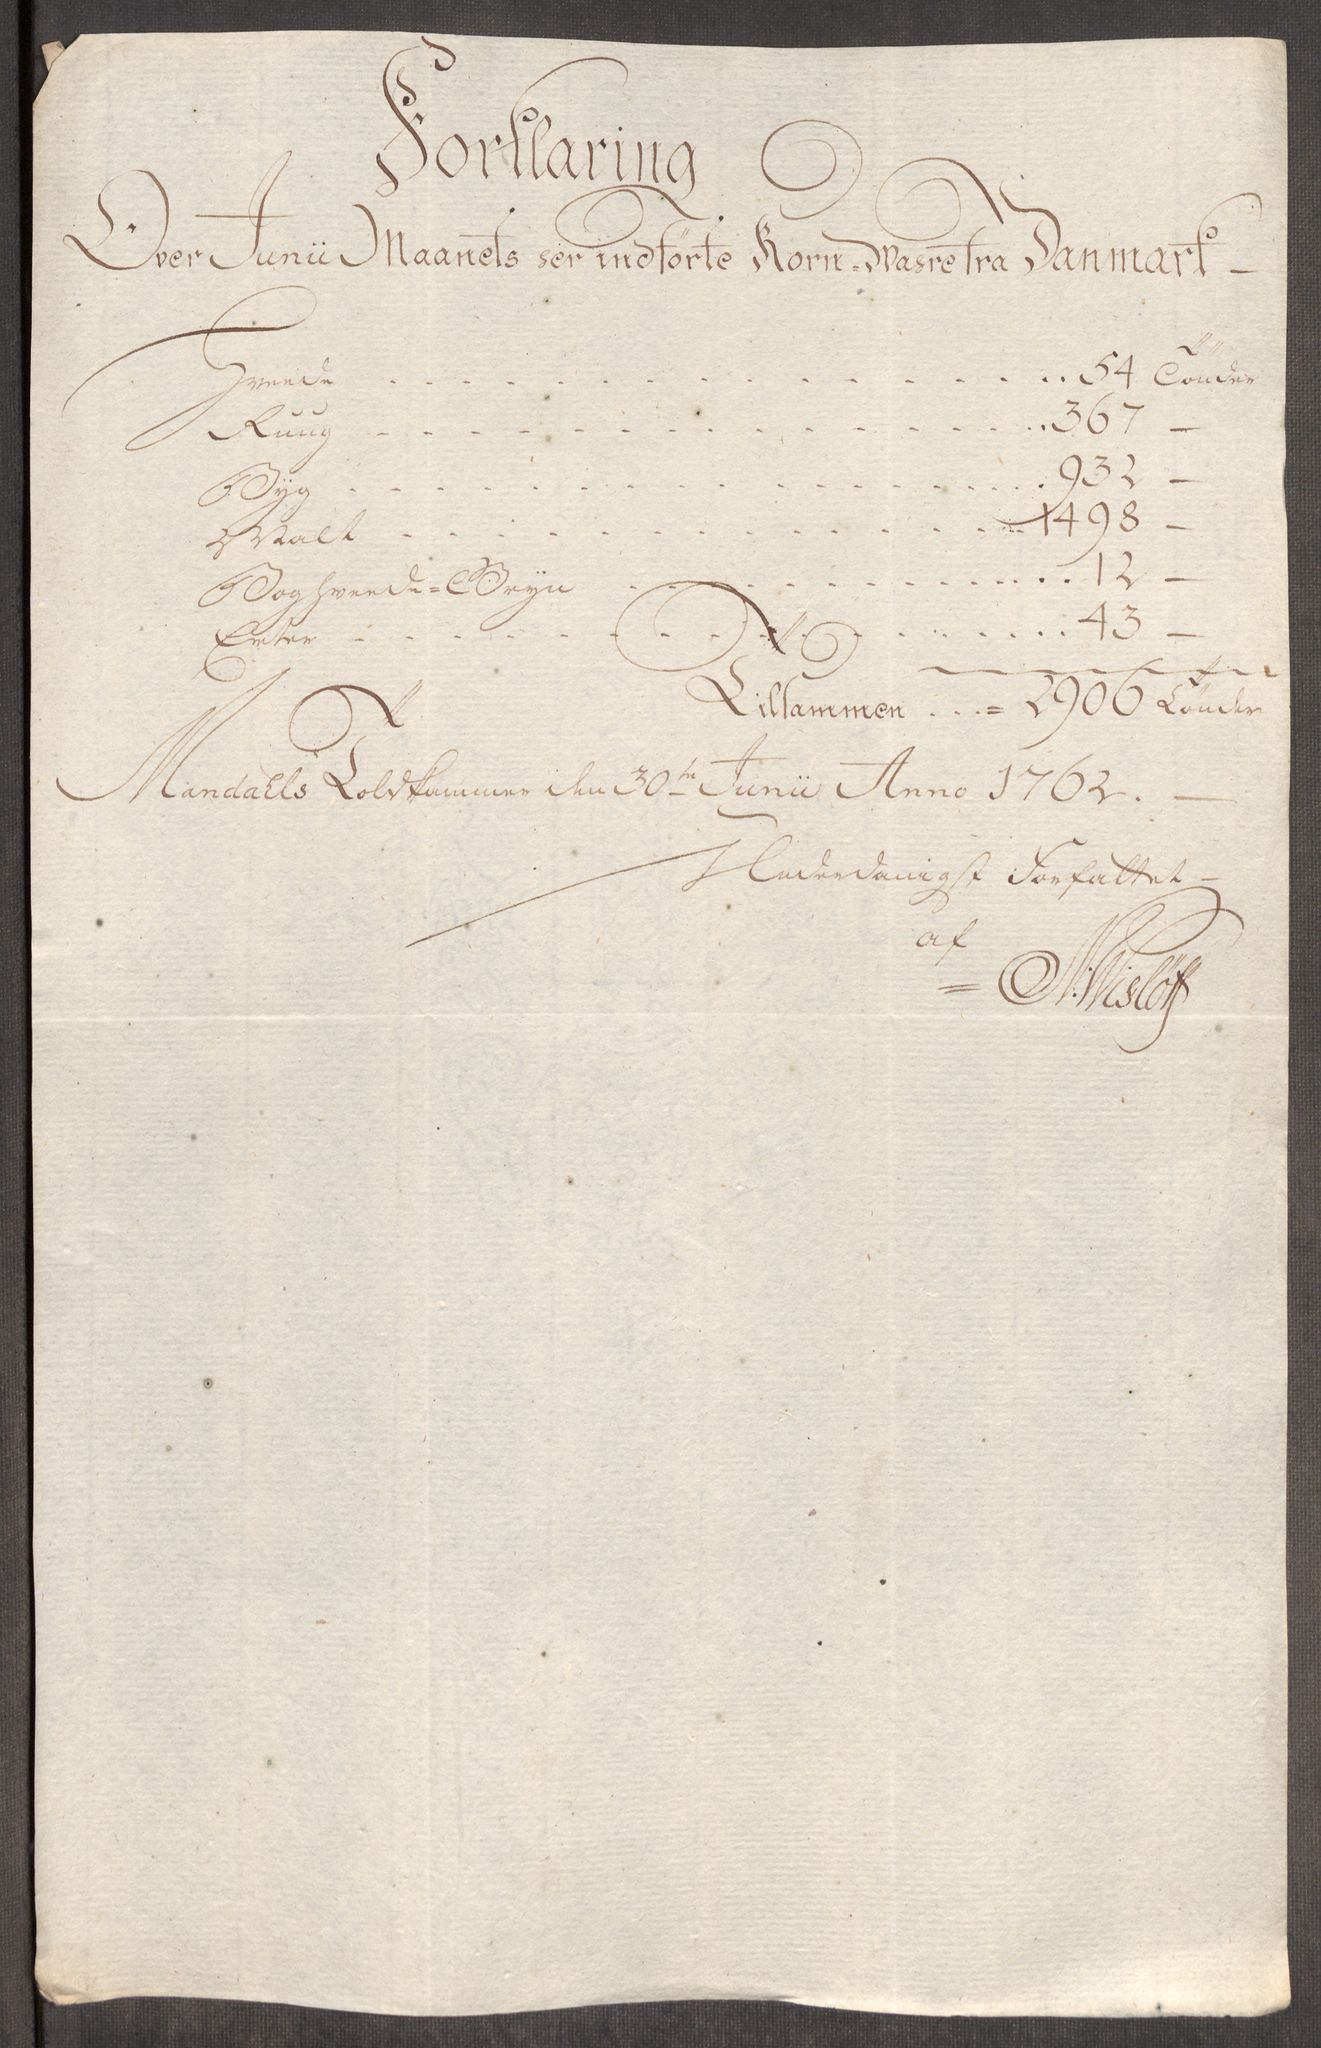 Forklaring
Over Junii Maanets her indförte Korn-Wahre fra Danmark
Hveede 54 Tönder
Ruug 367 -
Byg 932 -
Malt 1498 -
Boghveede-Gryn 12 -
Erter 43 -
Tilsammen = 2906 Tönder
Mandahls Toldkammer den 30te Junii Anno 1762.
Underdanigst Forfattet
af
N: Wislöff